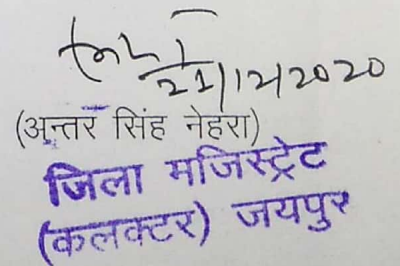 21/12/2020
(अन्तर सिंह नेहरा)
जिला मजिस्ट्रेट
(कलक्टर) जयपुर